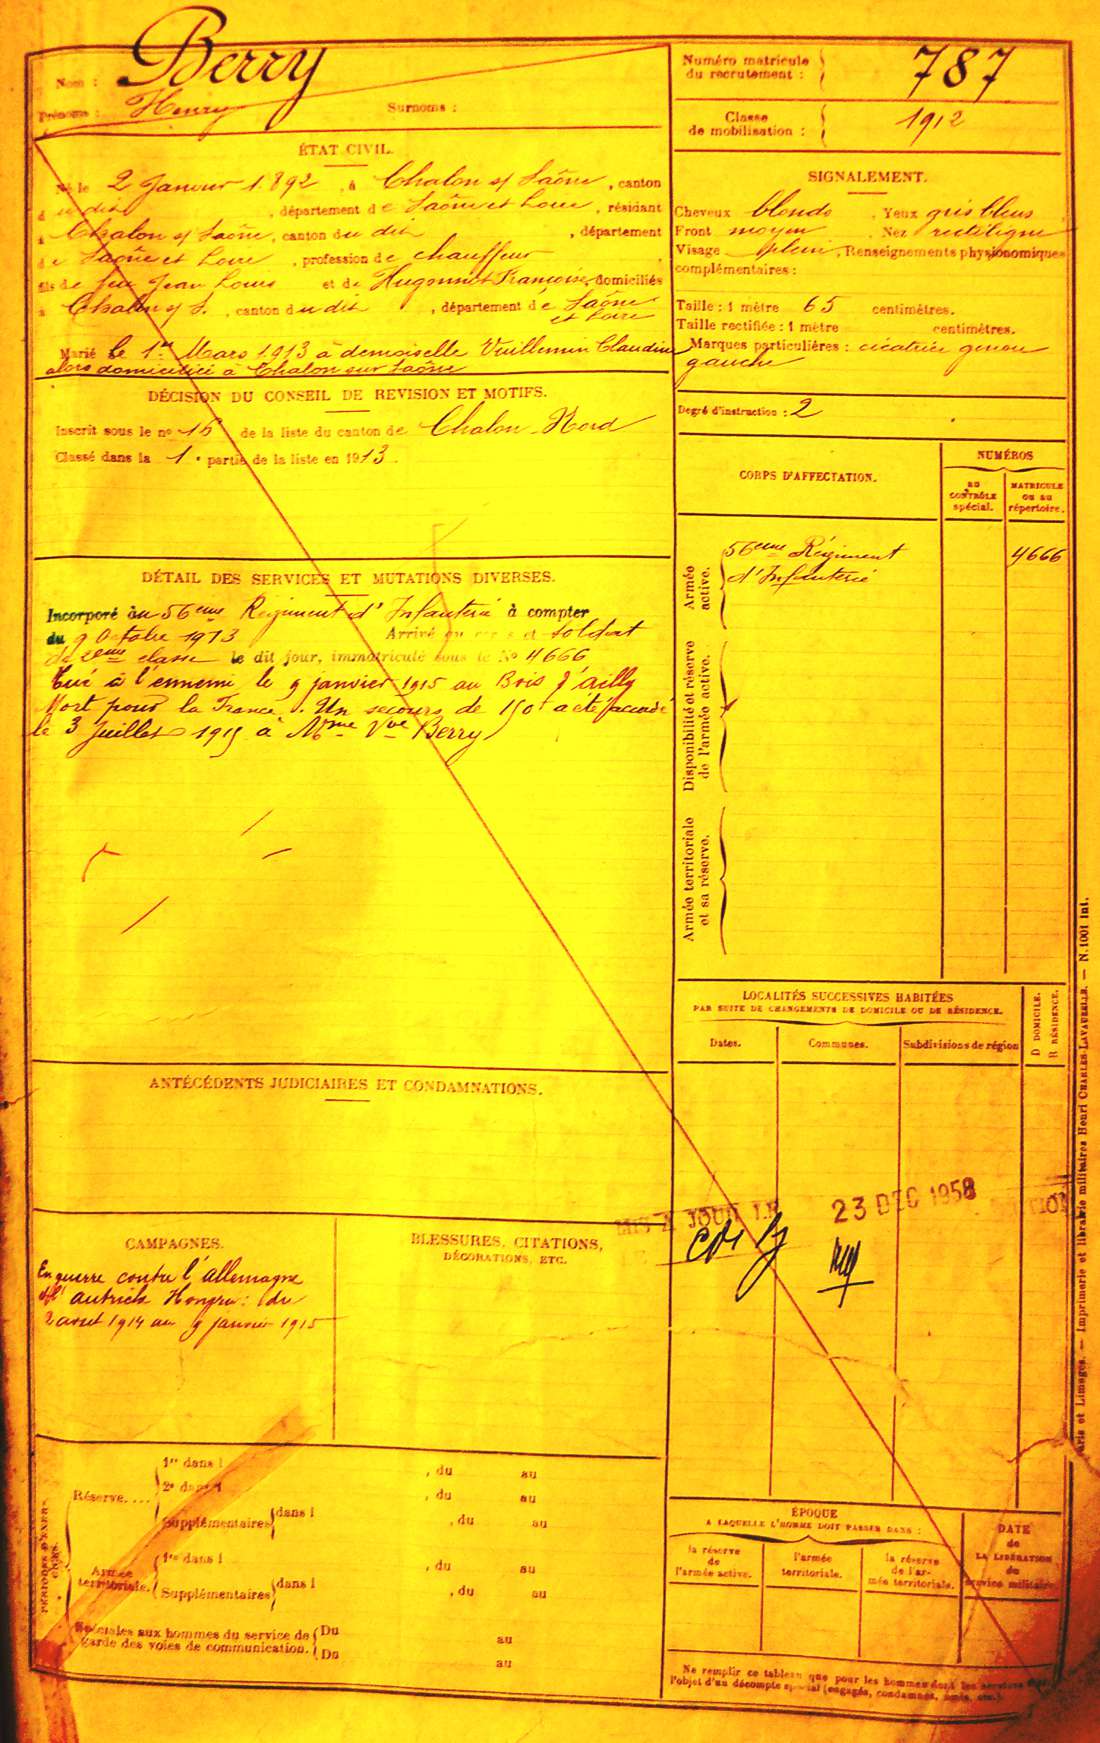 Nom : Berry
Prénoms : Henry Surnoms :
Numéro matricule du recrutement : 787
Classe de mobilisation : 1912
ÉTAT CIVIL.
Né le 2 Janvier 1892, à Chalon s/ Saône, canton
du dit, département de Saône et Loire, résidant
à Chalon s/ Saône, canton du dit, département
de Saône et Loire, profession de chauffeur
fils de feu Jean Louis et de Hugonnot Françoise, domiciliés
à Chalon s/ S., canton du dit, département de Saône
et Loire
Marié le 1er Mars 1913 à demoiselle Vuillemin Claudine
alors domiciliée à Chalon sur Saône
DÉCISION DU CONSEIL DE REVISION ET MOTIFS.
Inscrit sous le no 15 de la liste du canton de Chalon Nord
Classé dans la 1e partie de la liste en 1913
DÉTAIL DES SERVICES ET MUTATIONS DIVERSES.
Incorporé au 56eme Régiment d'Infanterie à compter
du 9 Octobre 1913 Arrivé au corps et soldat
de 2eme classe le dit jour, immatriculé sous le No 4666
Tué à l'ennemi le 9 janvier 1915 au Bois d'ailly
Mort pour la France. Un secours de 150f a été accordé
le 3 Juillet 1915 à Mme Vve Berry
ANTÉCÉDENTS JUDICIAIRES ET CONDAMNATIONS.
CAMPAGNES.
En guerre contre l'allemagne
et l'autrich Hongrie : du
2 aout 1914 au 9 janvier 1915
BLESSURES, CITATIONS,
DÉCORATIONS, ETC.
PÉRIODES D'EXERCICES.
Réserve....
1re dans l , du au
2e dans l , du au
Supplémentaires dans l , du au
Armée territoriale.
1re dans l , du au
Supplémentaires dans l , du au
Spéciales aux hommes du service de Du au
garde des voies de communication. Du au
SIGNALEMENT.
Cheveux blonds. Yeux gris bleus
Front moyen. Nez rectiligne
Visage plein, Renseignements physionomiques
complémentaires :
Taille : 1 mètre 65 centimètres.
Taille rectifiée : 1 mètre centimètres.
Marques particulières : cicatrice genou
gauche
Degré d'instruction : 2
CORPS D'AFFECTATION.
NUMÉROS
AU CONTRÔLE spécial.
MATRICULE OU AU répertoire.
Armée active.
56eme Régiment 4666
d'Infanterie
Disponibilité et réserve de l'armée active.
Armée territoriale et sa réserve.
LOCALITÉS SUCCESSIVES HABITÉES
PAR SUITE DE CHANGEMENTS DE DOMICILE OU DE RÉSIDENCE.
Dates. Communes. Subdivisions de région
D DOMICILE.
R RÉSIDENCE.
MIS A JOUR LE 23 DEC 1958
ÉPOQUE
A LAQUELLE L'HOMME DOIT PASSER DANS :
la réserve de l'armée active.
l'armée territoriale.
la réserve de l'armée territoriale.
DATE de LA LIBÉRATION du service militaire.
Ne remplir ce tableau que pour les hommes dont les services font
l'objet d'un décompte spécial (engagés, condamnés, omis, etc.).
Paris et Limoges. — Imprimerie et librairie militaires Henri CHARLES-LAVAUZELLE. — N. 1001 int.